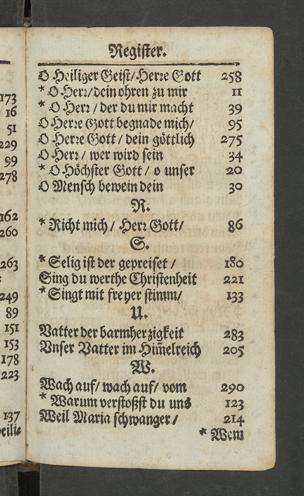 Register.
173
16
51
229
99
278
162
260
263
249
89
151
153
178
223
137
O Heiliger Geist/ Herre Gott 258
* O Herr/ dein ohren zu mir 11
* O Herr/ der du mir macht 39
O Herre Gott begnade mich/ 95
O Herre Gott/ dein göttlich 275
O Herr/ wer wird sein 34
* O Höchster Gott/ o unser 20
O Mensch bewein dein 30
R.
* Richt mich/ Herr Gott/ 86
S.
* Selig ist der gepreiset/ 180
Sing du werthe Christenheit 221
* Singt mit freyer stimm/ 133
U.
Vatter der barmherzigkeit 283
Vnser Vatter im Him̃elreich 205
W.
Wach auf/ wach auf/ vom 290
* Warum verstoßst du uns 123
Weil Maria schwanger/ 214
* Wem